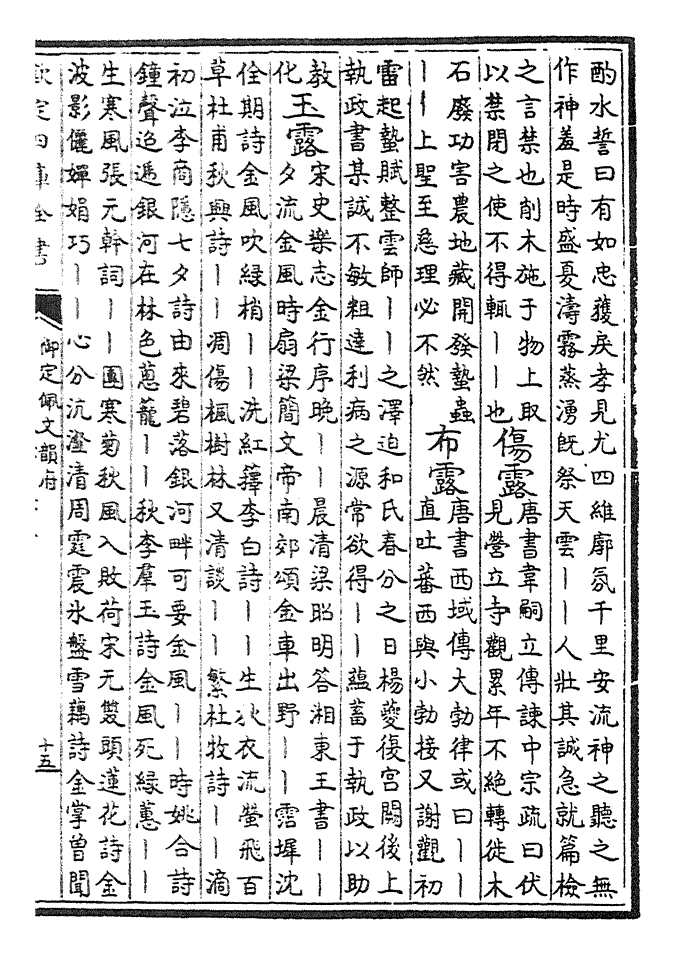 酌水誓曰有如忠獲戾孝見尤四維廓氛千里安流神之聽之無
作神羞是時盛夏濤霧蒸湧旣祭天雲丨丨人壯其誠急就篇檢
之言禁也削木施于物上取
以禁閉之使不得輒丨丨也
傷露
唐書韋嗣立傳諫中宗疏曰伏
見營立寺觀累年不絕轉徙木
石廢功害農地藏開發蟄蟲
丨丨上聖至慈理必不然
布露
唐書西域傳大勃律或曰丨丨
直吐蕃西與小勃接又謝觀初
雷起蟄賦整雲師丨丨之澤迫和氏春分之日楊夔復宮闕後上
執政書某誠不敏粗達利病之源常欲得丨丨蘊蓄于執政以助
教
化
玉露
宋史樂志金行序晚丨丨晨清梁昭明答湘東王書丨丨
夕流金風時扇梁簡文帝南郊頌金車出野丨丨霑墀沈
佺期詩金風吹綠梢丨丨洗紅籜李白詩丨丨生秋衣流螢飛百
草杜甫秋興詩丨丨凋傷楓樹林又清談丨丨繁杜牧詩丨丨滴
初泣李商隱七夕詩由來碧落銀河畔可要金風丨丨時姚合詩
鐘聲迢遞銀河在林色蔥蘢丨丨秋李羣玉詩金風死綠蕙丨丨
生寒風張元幹詞丨丨團寒菊秋風入敗荷宋无雙頭蓮花詩金
波影儷嬋娟巧丨丨心分沆瀣清周霆震氷盤雪藕詩金掌曾聞
欽定四庫全書
御定佩文韻府
十五